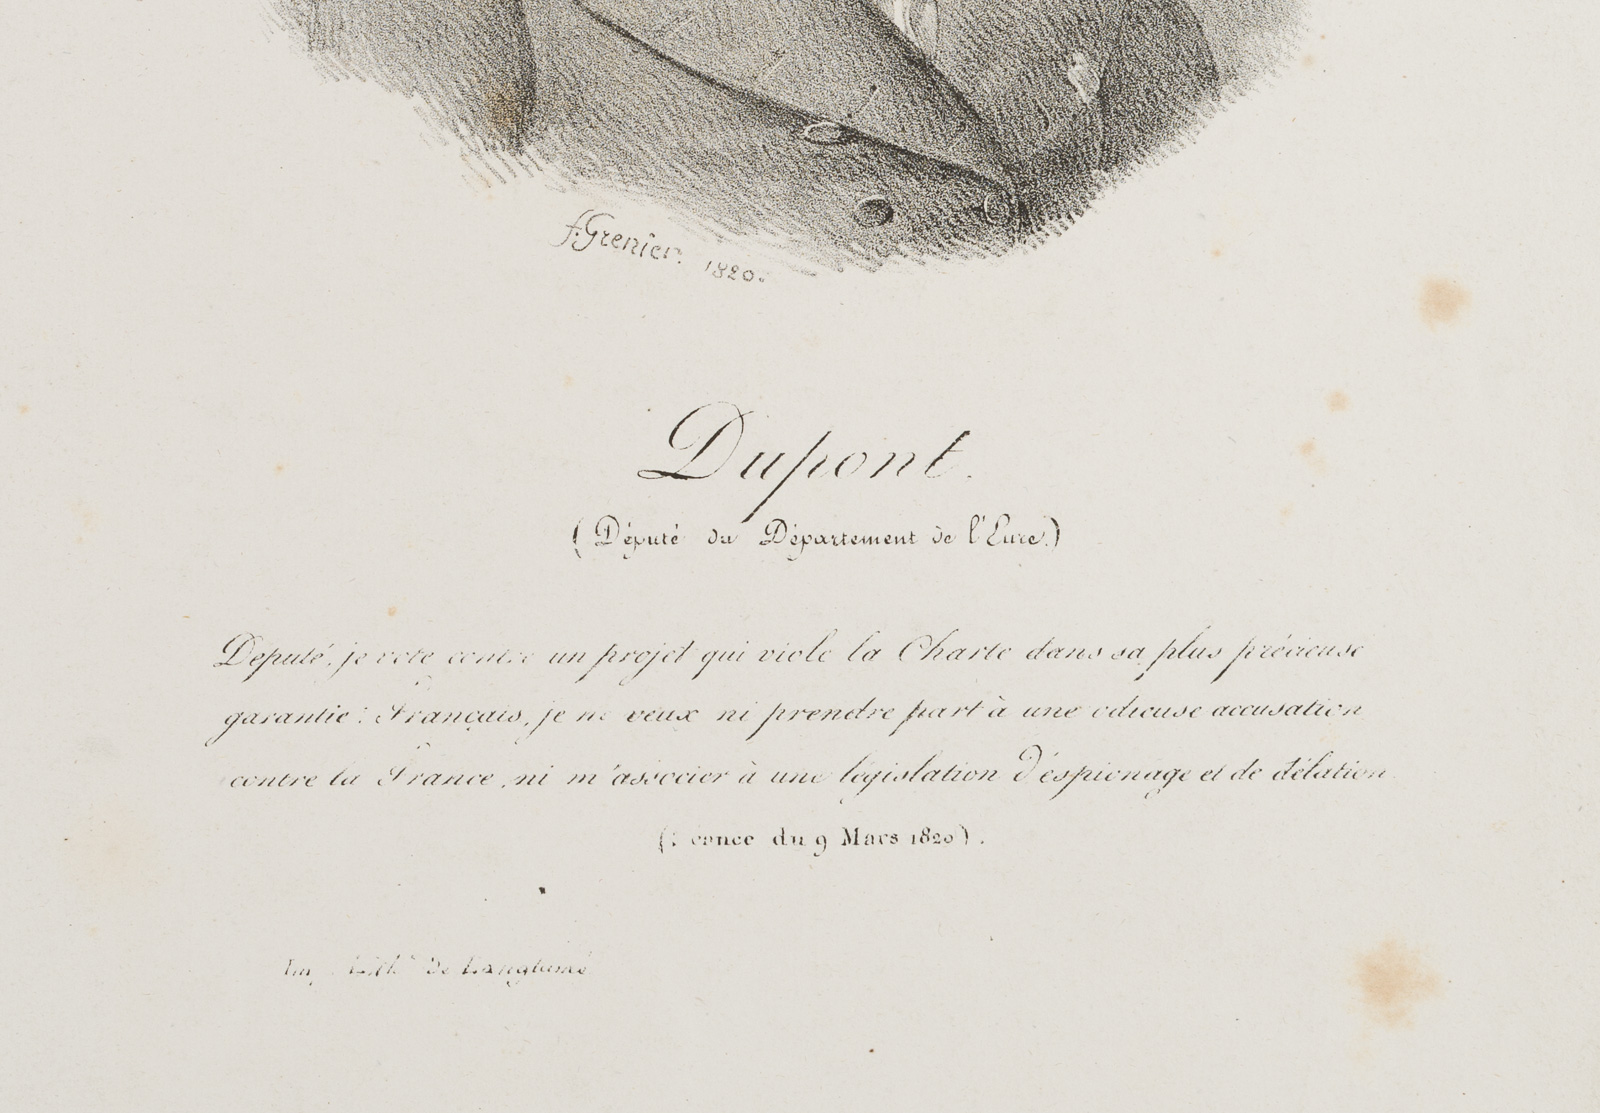 f. Grenier. 1820.
Dupont.
(Député du Département de l'Eure.)
Deputé, je vote contre un projet qui viole la Charte dans sa plus précieuse
garantie : Français, je ne veux ni prendre part à une odieuse accusation
contre la France, ni m'associer à une législation d'éspionage et de délation
(Séance du 9 Mars 1820).
Imp. Lith. de Langlumé